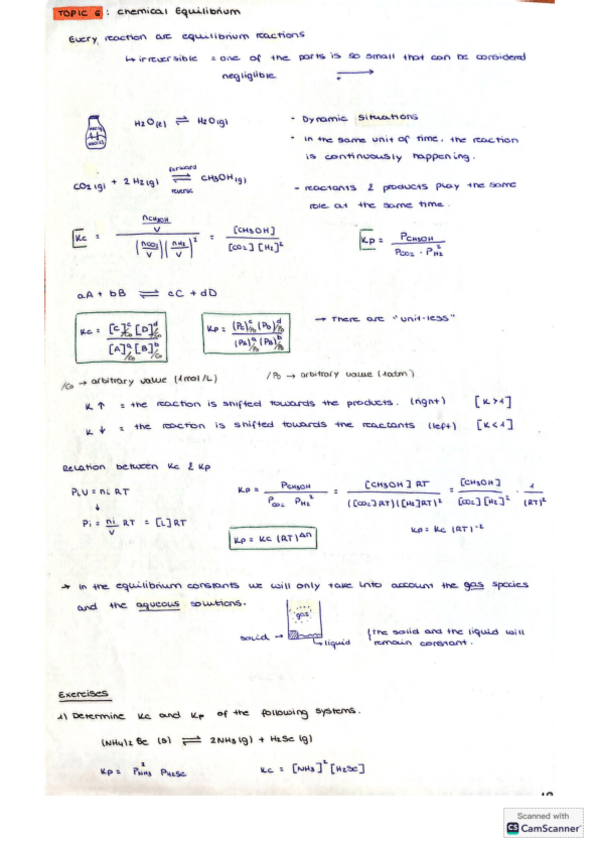 TOPIC 6 : Chemical Equilibrium
Every reaction are equilibrium reactions
↳ irreversible = one of the parts is so small that can be considered
negligible
H2O(l) ⇌ H2O(g)
- Dynamic situations
- In the same unit of time, the reaction
is continuously happening.
CO2(g) + 2 H2(g) ⇌ CH3OH(g)
forward
reverse
- reactants & products play the same
role at the same time.
Kc = (nCH3OH/V) / (nCO2/V)(nH2/V)^2 = [CH3OH] / [CO2][H2]^2
Kp = PCH3OH / PCO2 · PH2^2
aA + bB ⇌ cC + dD
Kc = [C]^c/Co [D]^d/Co / [A]^a/Co [B]^b/Co
Kp = (Pc)^c/Po (PD)^d/Po / (PA)^a/Po (PB)^b/Po
→ There are "unit-less"
/Co → arbitrary value (1mol/L)
/Po → arbitrary value (1atm)
K ↑ = the reaction is shifted towards the products. (right) [K>1]
K ↓ = the reaction is shifted towards the reactants (left) [K<1]
Relation between Kc & Kp
PiV = ni RT
↓
Pi = ni/V RT = [L] RT
Kp = PCH3OH / PCO2 PH2^2 = [CH3OH] RT / ([CO2]RT)([H2]RT)^2 = [CH3OH] / [CO2][H2]^2 · 1/(RT)^2
Kp = Kc (RT)^Δn
Kp = Kc (RT)^-2
→ In the equilibrium constants we will only take into account the gas species
and the aqueous solutions.
gas
solid →
liquid
(The solid and the liquid will
remain constant.
Exercises
1) Determine Kc and Kp of the following systems.
(NH4)2 Se (s) ⇌ 2NH3(g) + H2Se(g)
Kp = P^2NH3 PH2Se
Kc = [NH3]^2 [H2Se]
Scanned with
CS CamScanner